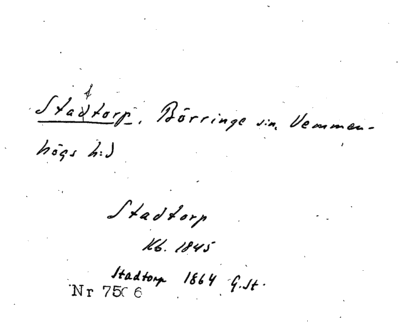 Stadtorp, Börringe sn, Vemmen-
högs h:d
Stadtorp
Kb. 1845
Stadtorp 1864 G.St.
Nr 7506